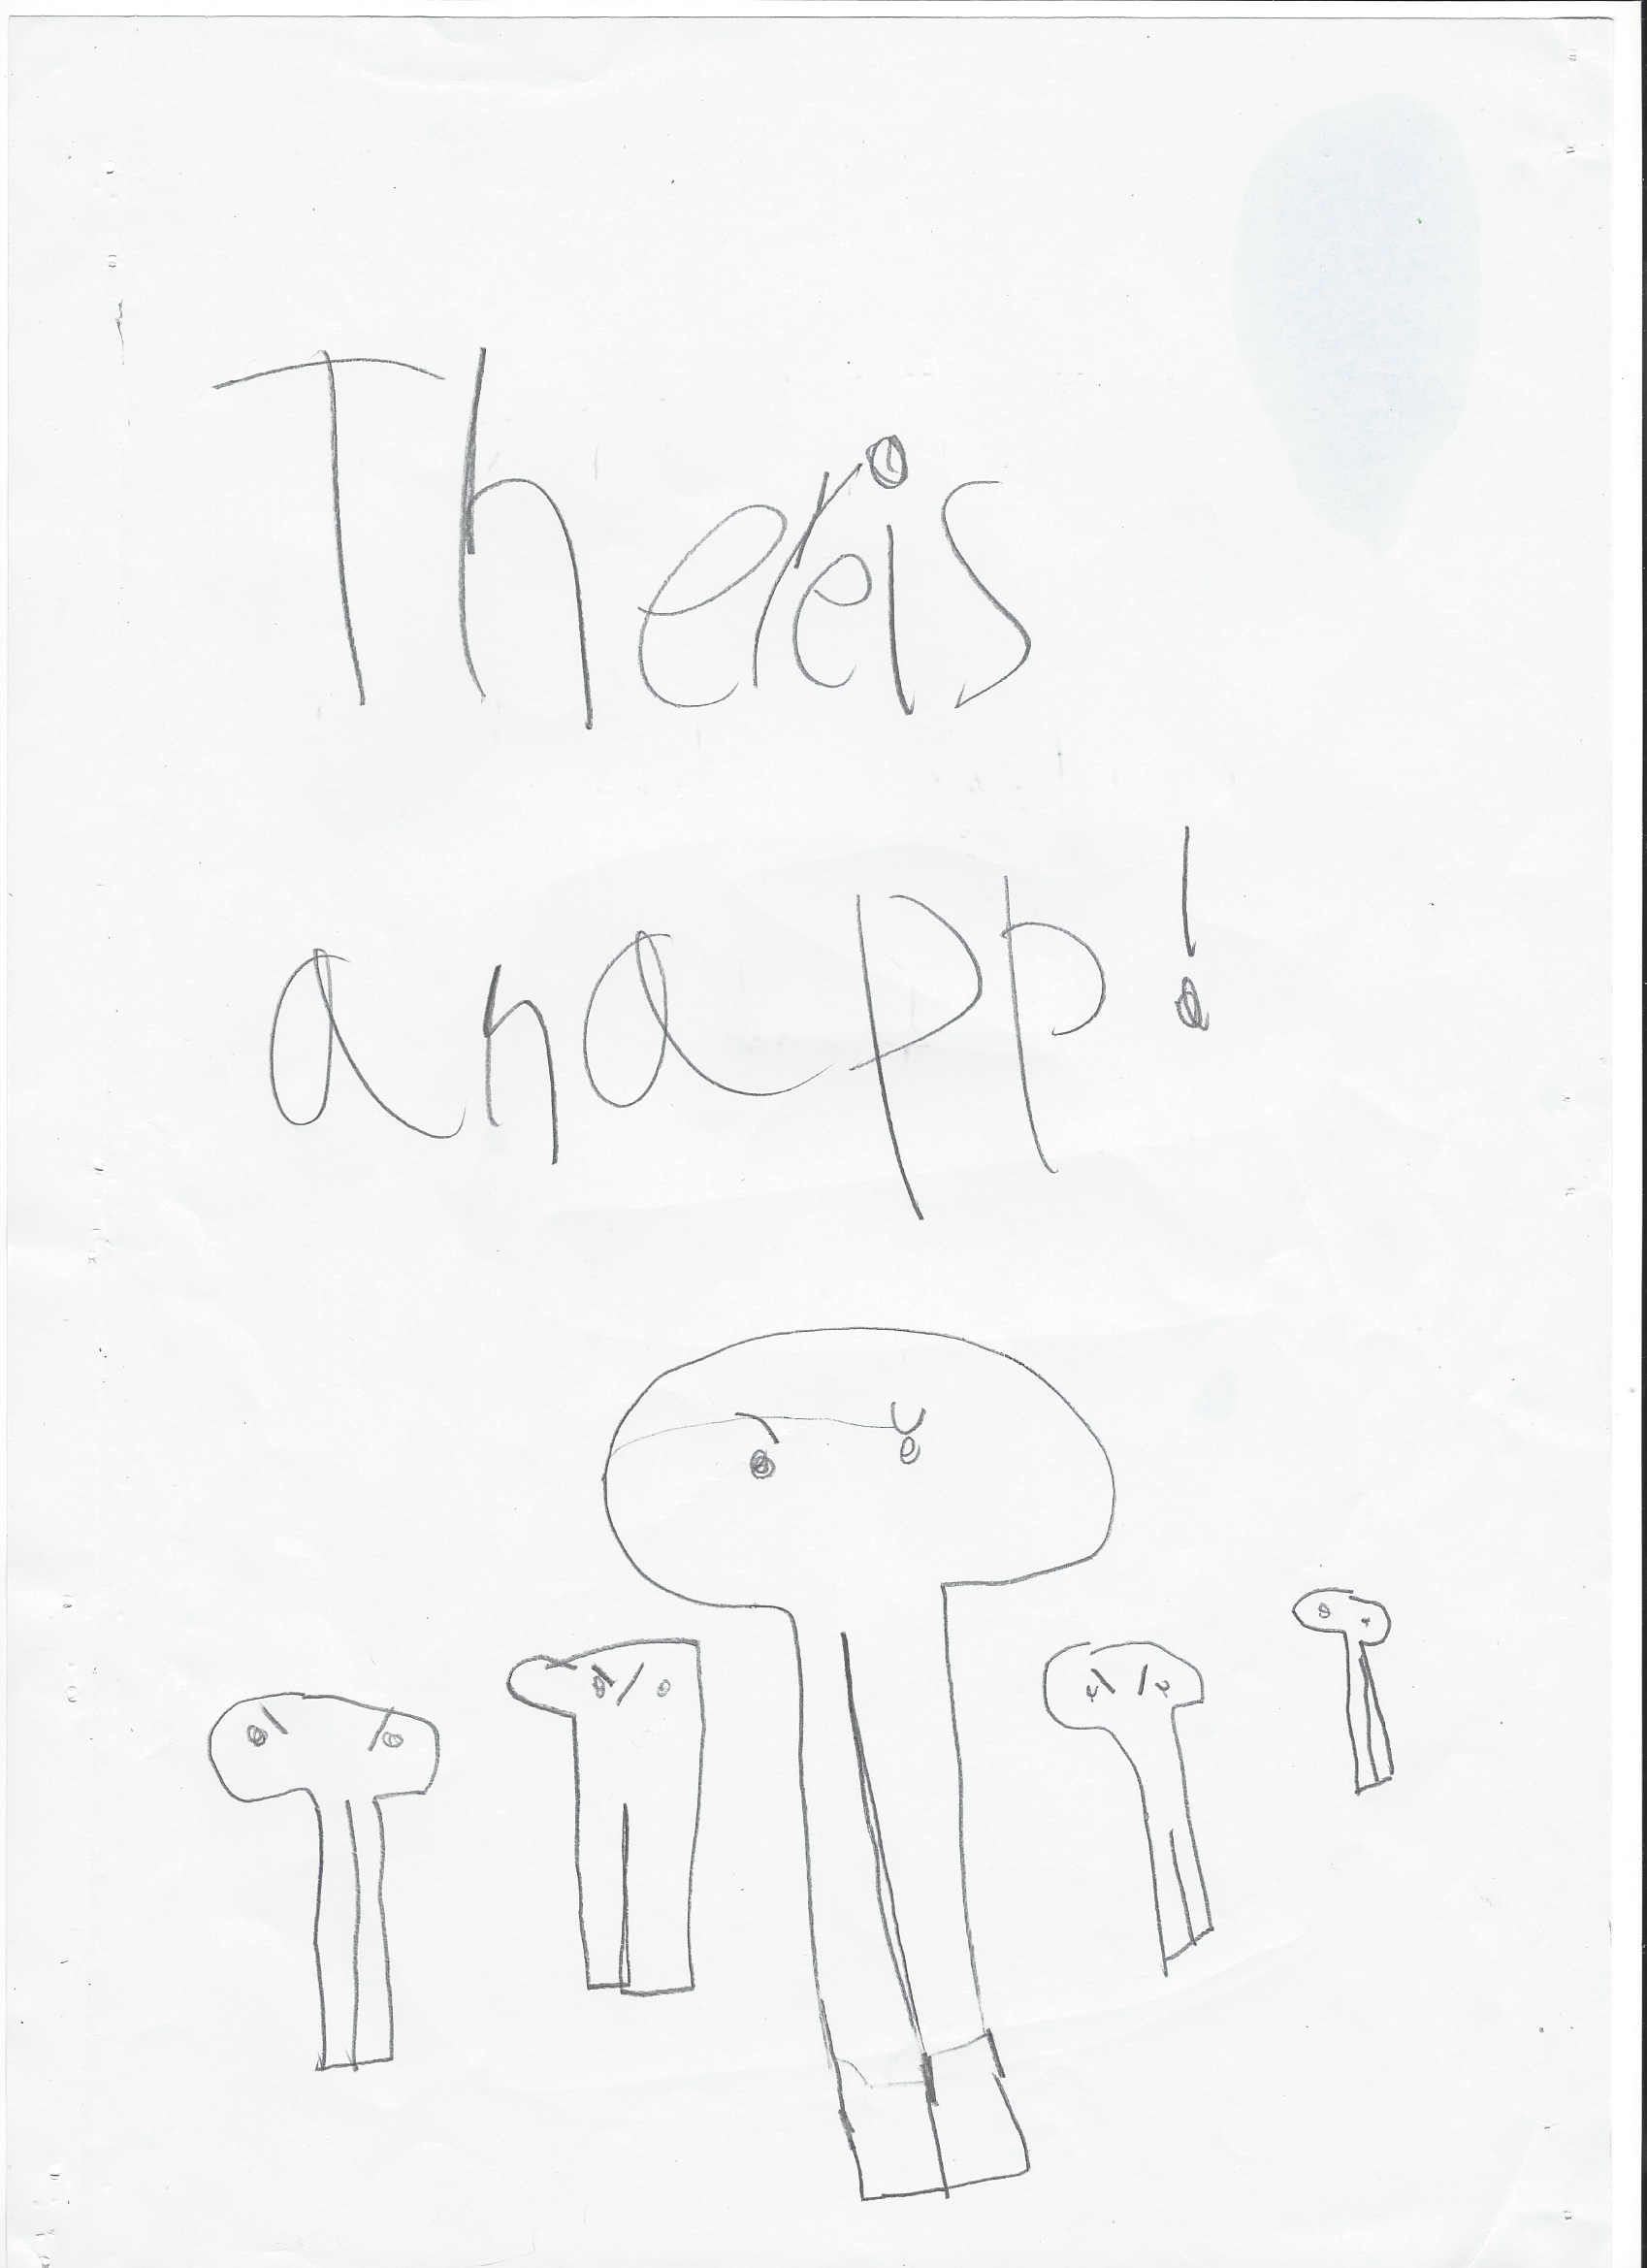 There is
an app!